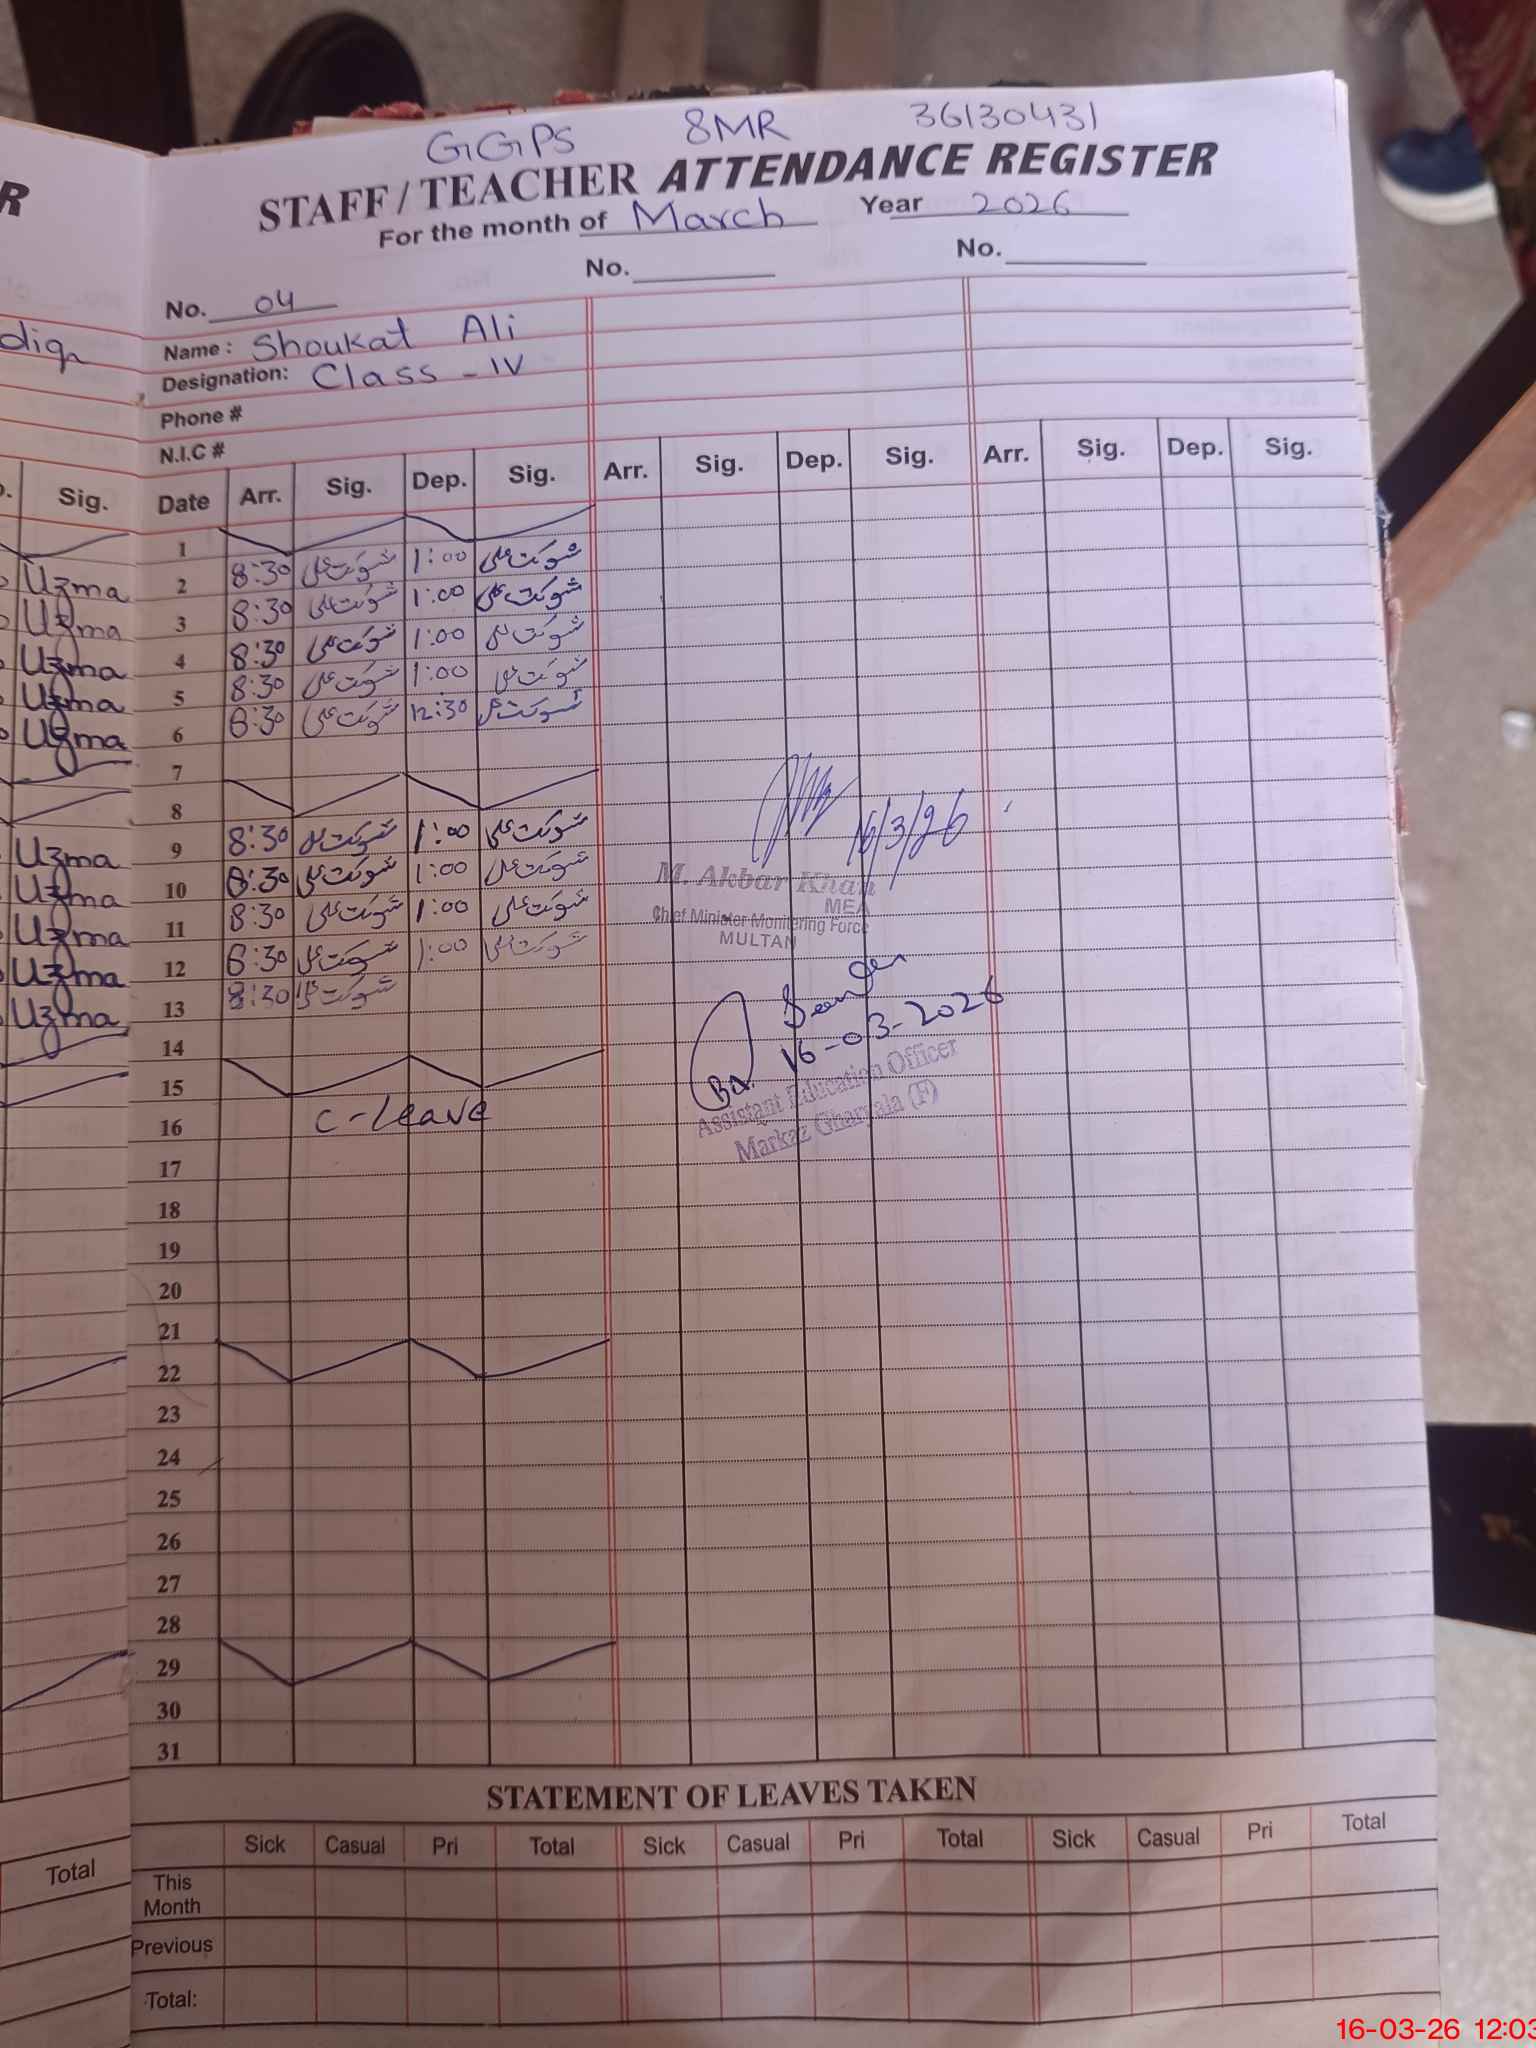 GGPS 8MR 36130431
STAFF / TEACHER ATTENDANCE REGISTER
For the month of March Year 2026
No. 04 No. No.
Name: Shoukat Ali
Designation: Class - IV
Phone #
N.I.C #
Sig. Date Arr. Sig. Dep. Sig. Arr. Sig. Dep. Sig. Arr. Sig. Dep. Sig.
1
Uzma 2 8:30 شوکت علی 1:00 شوکت علی
Uzma 3 8:30 شوکت علی 1:00 شوکت علی
Uzma 4 8:30 شوکت علی 1:00 شوکت علی
Uzma 5 8:30 شوکت علی 1:00 شوکت علی
Uzma 6 8:30 شوکت علی 12:30 شوکت علی
7
8
Uzma 9 8:30 شوکت علی 1:00 شوکت علی
Uzma 10 8:30 شوکت علی 1:00 شوکت علی
Uzma 11 8:30 شوکت علی 1:00 شوکت علی
Uzma 12 8:30 شوکت علی 1:00 شوکت علی
Uzma 13 8:30 شوکت علی
14
15
16 C-Leave
17
18
19
20
21
22
23
24
25
26
27
28
29
30
31
16/3/26
M. Akbar Khan
MEA
Chief Minister Monitering Force
MULTAN
16-03-2026
Assistant Education Officer
Markaz (F)
STATEMENT OF LEAVES TAKEN
Sick Casual Pri Total Sick Casual Pri Total Sick Casual Pri Total
Total This Month
Previous
Total:
16-03-26 12:03